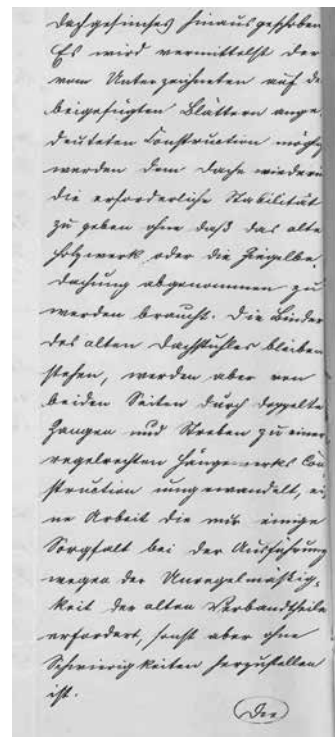 Dachgesimses hinausgeschoben
Es wird vermittelst der
vom Unterzeichneten auf de
beigefügten Blättern ange
deuteten Construction mögl
werden dem Dache wiederu
die erforderliche Stabilität
zu geben ohne daß das alte
Holzwerk oder die Ziegelbe,
dachung abgenommen zu
werden braucht. Die Binder
des alten Dachstuhles bleiben
stehen, werden aber von
beiden Seiten durch doppelte
Zangen und Streben zu einer
regelrechten Hängewerks Con
struction umgewandelt, ei
ne Arbeit die nur einige
Sorgfalt bei der Ausführung
wegen der Unregelmäßig,
keit der alten Verbandtheile
erfordert, sonst aber ohne
Schwierigkeiten herzustellen
ist.
Die